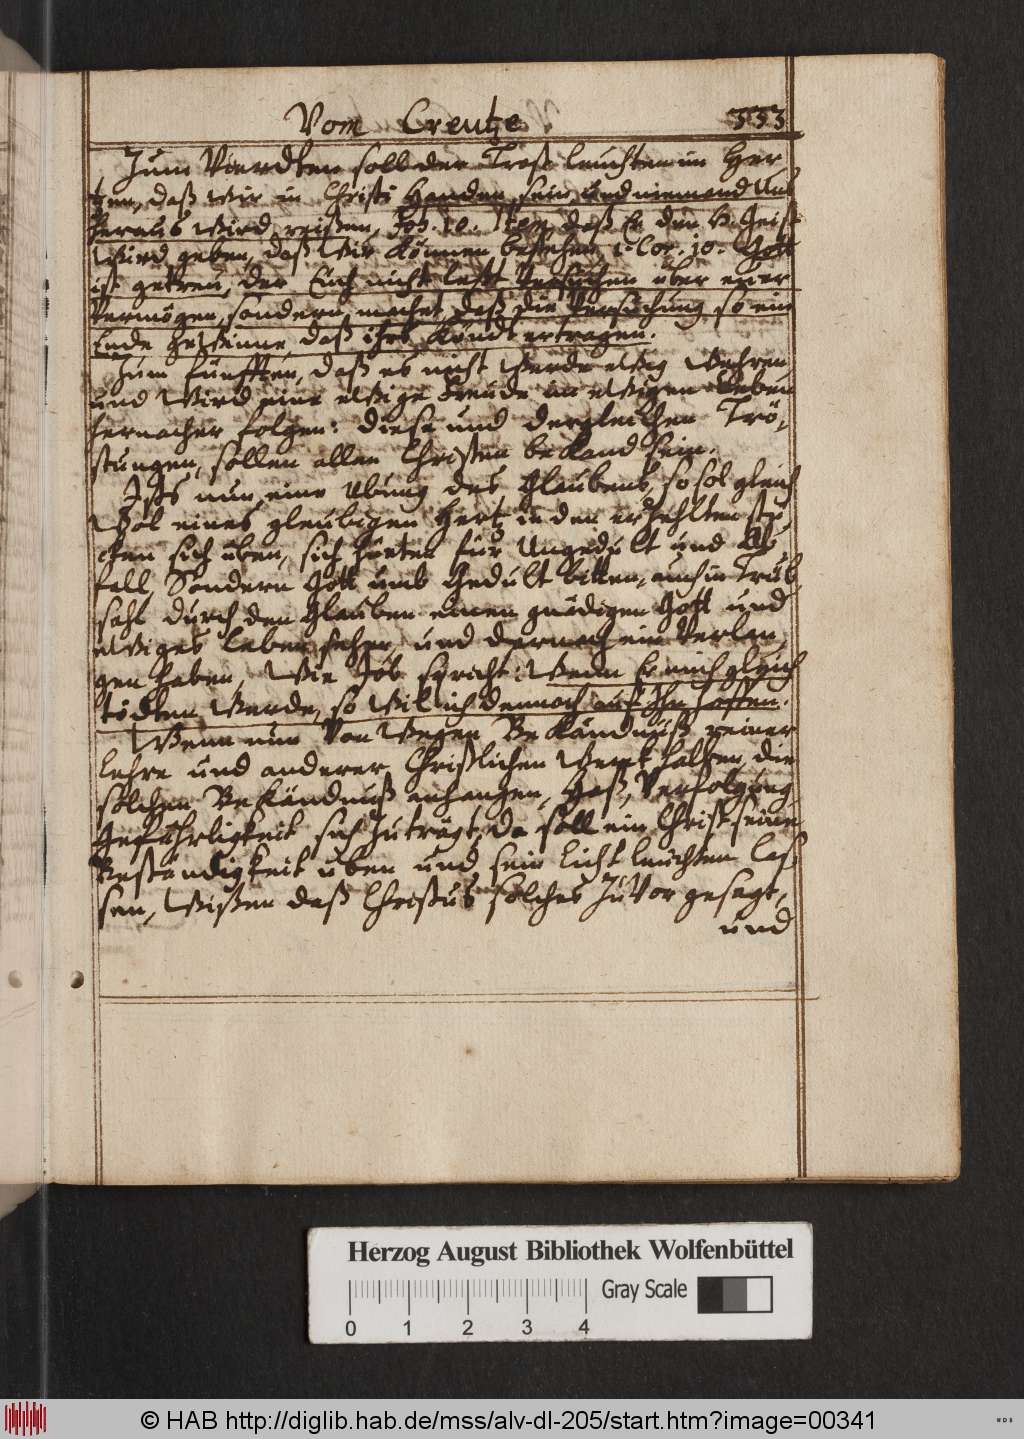 Vom Creutze. 333
Zum Vierdten soll der Trost leuchten im Her
tzen, daß wir in Christi Handen sein, und niemand Uns
heraus wird reißen, Joh. 10. Item, daß Er den H. Geist
wird geben, daß wir können bestehen, 1. Cor. 10. Gott
ist getreu, der Euch nicht lest Versuchen über euer
Vermögen, sondern machet, daß die Versuchung so ein
Ende gewinne, daß ihrs könndt ertragen.
Zum fünfften, daß es nicht werde ewig wehren,
und wird eine ewige Freude im ewigen Leben
hernacher folgen: diese und dergleichen Trö,
stungen, sollen allen Christen bekand sein.
Ists nun eine Übung des Glaubens, so sol gleich
wol eines gleubigen Hertz in den erzehlten stü
cken sich üben, sich hüeten für Ungedult und Ab
fall, Sondern Gott umb Gedult bitten, auch in Trüb
sahl durch den Glauben einen gnädigen Gott und
ewiges leben sehen, und darnach ein Verlan
gen haben, Wie Job spricht: Wenn Er mich gleich
tödten werde, so wil ich dennoch auf Ihn hoffen.
Wenn nun Von wegen Bekändnuß reiner
lehre und anderer Christlichen werck halben, die
solchen Bekändnuß anhangen, Haß, Verfolgung
Gefährligkeit sich zuträgt, da soll ein Christ seine
Beständigkeit üben und sein licht leuchten las
sen, wißen daß Christus solches zuvor gesagt,
und
Herzog August Bibliothek Wolfenbüttel
Gray Scale
0 1 2 3 4
© HAB http://diglib.hab.de/mss/alv-dl-205/start.htm?image=00341